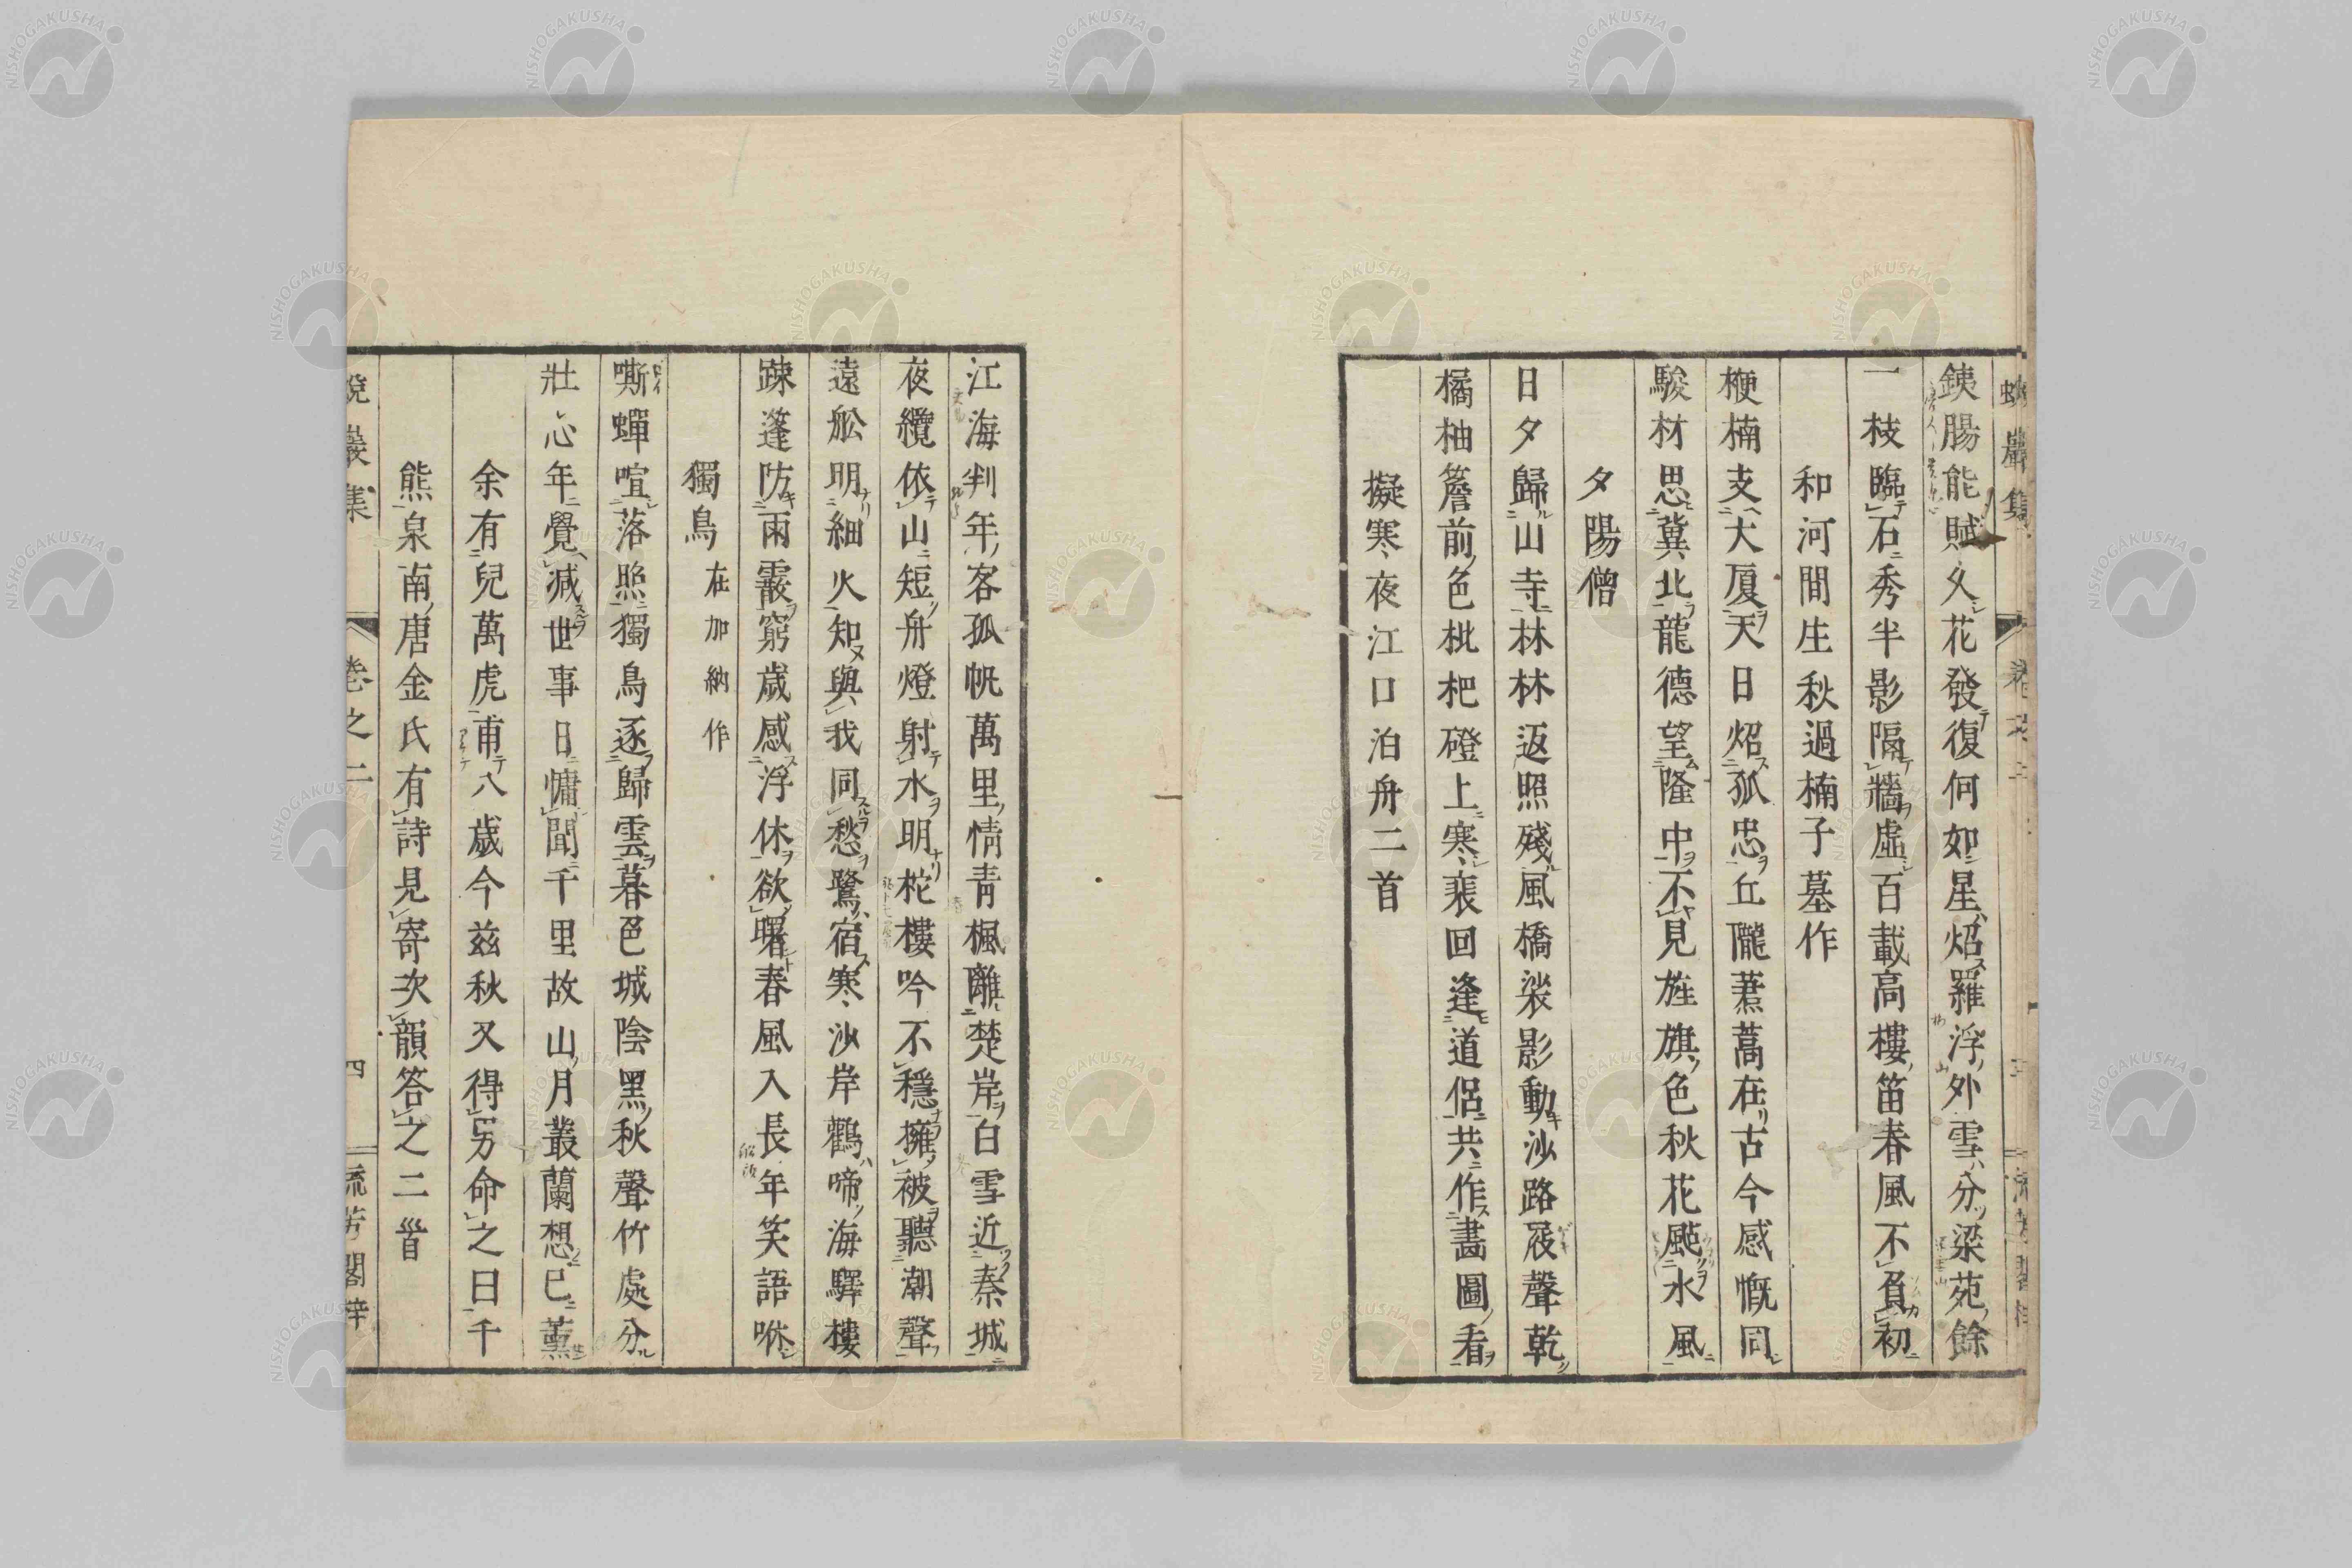 鐵腸能賦久花發復何如星炤羅浮外雪分梁苑餘
一枝臨石秀半影隔牆虛百載高樓笛春風不負初
和河間生秋過楠子墓作
楩楠支大厦天日炤孤忠丘隴蕭蒿在古今感慨同
駿材思冀北龍德望隆中不見旌旗色秋花颭水風
夕陽僧
日夕歸山寺林林返照殘風橋裟影動沙路屐聲乾
橘柚簷前色枇杷磴上寒裴回逢道侶共作畵圖看
擬寒夜江口泊舟二首
江海判年客孤帆萬里情青楓離楚岸白雪近秦城
夜纜依山短舟燈射水明柁樓吟不穩擁被聽潮聲
遠舩明細火知與我同愁鷺宿寒沙岸鸛啼海驛樓
踈篷防雨霰窮歲感浮休欲曙春風入長年笑語咻
獨鳥 在加納作
嘶蟬喧落照獨鳥逐歸雲暮邑城陰黑秋聲竹處分
壯心年覺減世事日慵聞千里故山月叢蘭想已薫
余有兒萬虎甫八歲今茲秋又得男命之曰千
熊泉南唐金氏有詩見寄次韻答之二首
巖集 卷之二 四
NISHOGAKUSHA